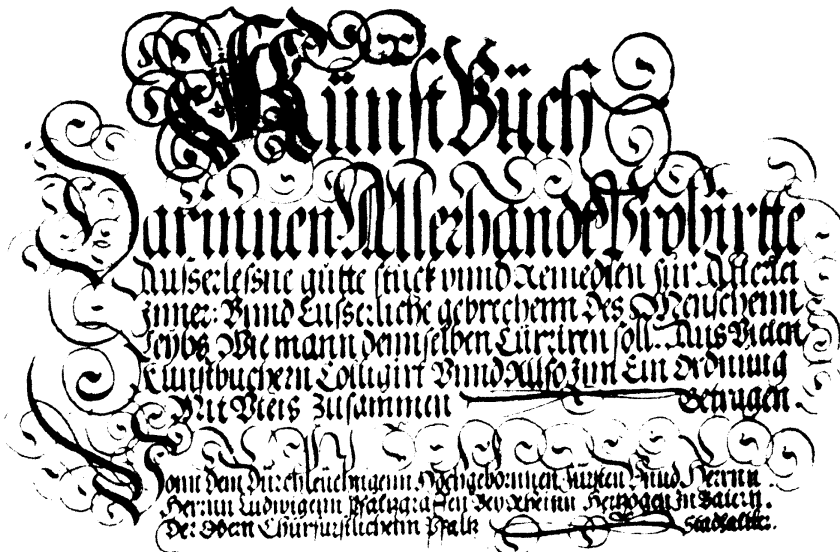 Künst Büch
Darinnen Allerhande Probirtte
Ausserlessne gütte stück vnnd Remedien für Allerlei
Inner: Vnnd Eusserliche gebrechenn des Menschenn
Leybs Wie mann dennselben Cüriren soll: Aus Vielen
Kunstbuchern Colligirt Vnnd Allso Inn Ein Ordnung
Mit Vleis Zusammen Getragen.
Vonn dem Dürchleüchtigenn Hochgebornnen Fürsten Vnnd Herrnn
Herrnn Ludwigenn Pfaltzgraffen Bey Rheinn Hertzogen In Baiern.
Der Obern Chürfürstlichenn Pfaltz Stadhalter.